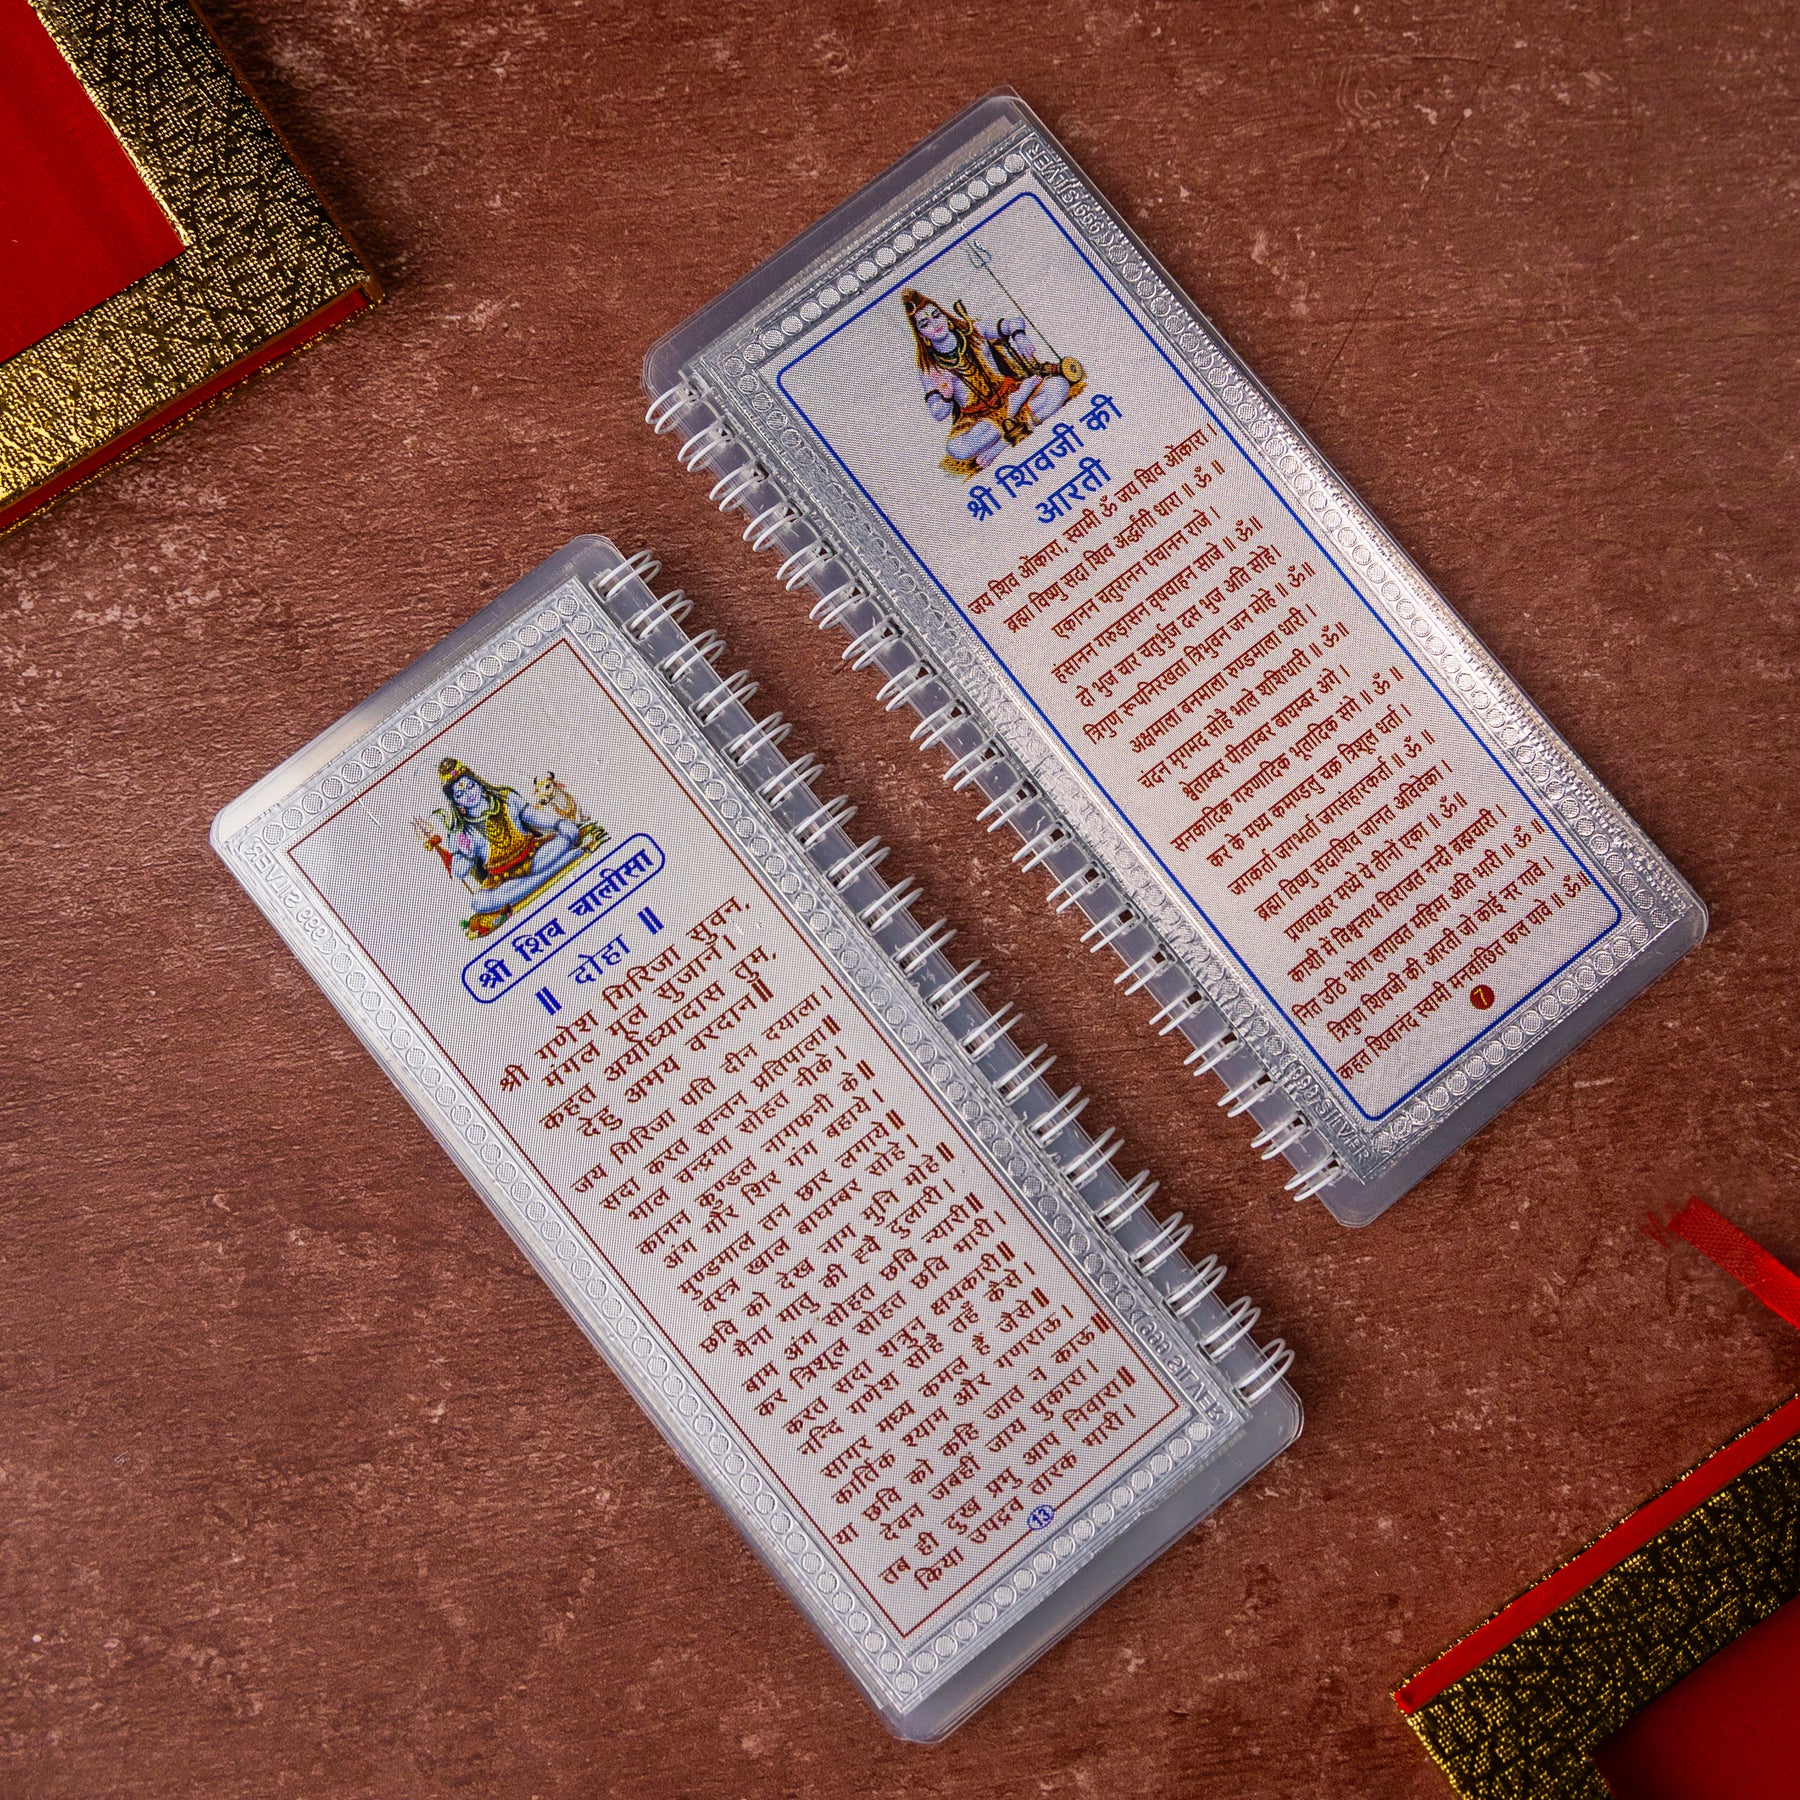 श्री शिव चालीसा
॥ दोहा ॥
श्री गणेश गिरिजा सुवन,
मंगल मूल सुजान।
कहत अयोध्यादास तुम,
देहु अभय वरदान॥
जय गिरिजा पति दीन दयाला।
सदा करत सन्तन प्रतिपाला॥
भाल चन्द्रमा सोहत नीके।
कानन कुण्डल नागफनी के॥
अंग गौर शिर गंग बहाये।
मुण्डमाल तन छार लगाये॥
वस्त्र खाल बाघम्बर सोहे।
छवि को देख नाग मुनि मोहे॥
मैना मातु की ह्वै दुलारी।
बाम अंग सोहत छवि न्यारी॥
कर त्रिशूल सोहत छवि भारी।
करत सदा शत्रुन क्षयकारी॥
नन्दि गणेश सोहै तहँ कैसे।
सागर मध्य कमल हैं जैसे॥
कार्तिक श्याम और गणराऊ।
या छवि को कहि जात न काऊ॥
देवन जबहीं जाय पुकारा।
तब ही दुख प्रभु आप निवारा॥
किया उपद्रव तारक भारी।
13
999 SILVER
999 SILVER
श्री शिवजी की
आरती
जय शिव ओंकारा, स्वामी ॐ जय शिव ओंकारा।
ब्रह्मा विष्णु सदा शिव अर्द्धांगी धारा ॥ ॐ ॥
एकानन चतुरानन पंचानन राजे।
हंसानन गरुड़ासन वृषवाहन साजे ॥ ॐ॥
दो भुज चार चतुर्भुज दस भुज अति सोहे।
त्रिगुण रूपनिरखता त्रिभुवन जन मोहे ॥ ॐ॥
अक्षमाला बनमाला रुण्डमाला धारी।
चंदन मृगमद सोहै भाले शशिधारी ॥ ॐ॥
श्वेताम्बर पीताम्बर बाघम्बर अंगे।
सनकादिक गरुणादिक भूतादिक संगे ॥ ॐ ॥
कर के मध्य कमण्डलु चक्र त्रिशूल धर्ता।
जगकर्ता जगभर्ता जगसंहारकर्ता ॥ ॐ ॥
ब्रह्मा विष्णु सदाशिव जानत अविवेका।
प्रणवाक्षर मध्ये ये तीनों एका ॥ ॐ॥
काशी में विश्वनाथ विराजत नन्दी ब्रह्मचारी।
नित उठि भोग लगावत महिमा अति भारी ॥ ॐ ॥
त्रिगुण शिवजी की आरती जो कोई नर गावे।
कहत शिवानंद स्वामी मनवांछित फल पावे ॥ ॐ॥
7
999 SILVER
999 SILVER